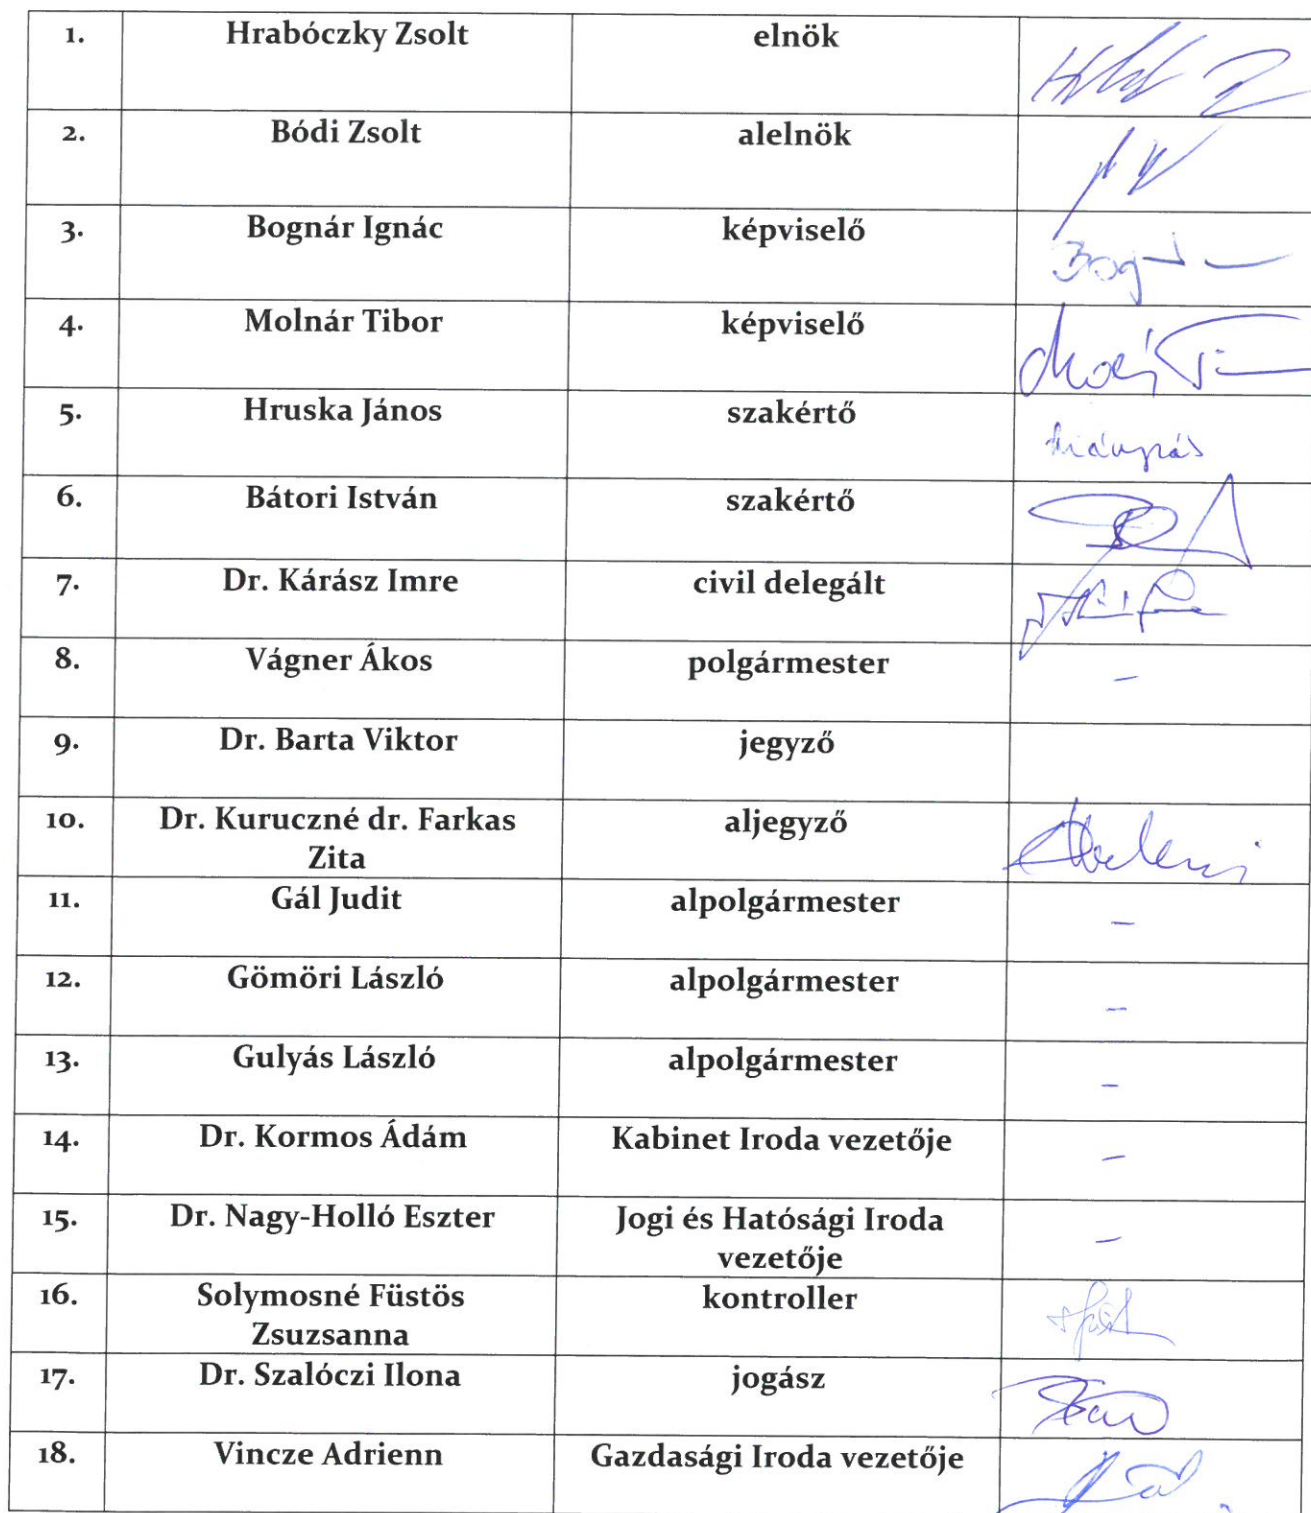 1. Hrabóczky Zsolt elnök
2. Bódi Zsolt alelnök
3. Bognár Ignác képviselő
4. Molnár Tibor képviselő
5. Hruska János szakértő hiányzás
6. Bátori István szakértő
7. Dr. Kárász Imre civil delegált
8. Vágner Ákos polgármester –
9. Dr. Barta Viktor jegyző
10. Dr. Kuruczné dr. Farkas aljegyző
Zita
11. Gál Judit alpolgármester –
12. Gömöri László alpolgármester –
13. Gulyás László alpolgármester –
14. Dr. Kormos Ádám Kabinet Iroda vezetője –
15. Dr. Nagy-Holló Eszter Jogi és Hatósági Iroda –
vezetője
16. Solymosné Füstös kontroller
Zsuzsanna
17. Dr. Szalóczi Ilona jogász
18. Vincze Adrienn Gazdasági Iroda vezetője